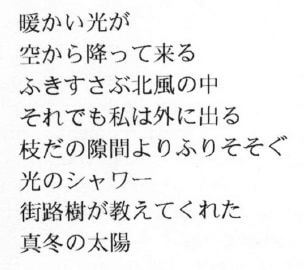 暖かい光が
空から降って来る
ふきすさぶ北風の中
それでも私は外に出る
枝だの隙間よりふりそそぐ
光のシャワー
街路樹が教えてくれた
真冬の太陽